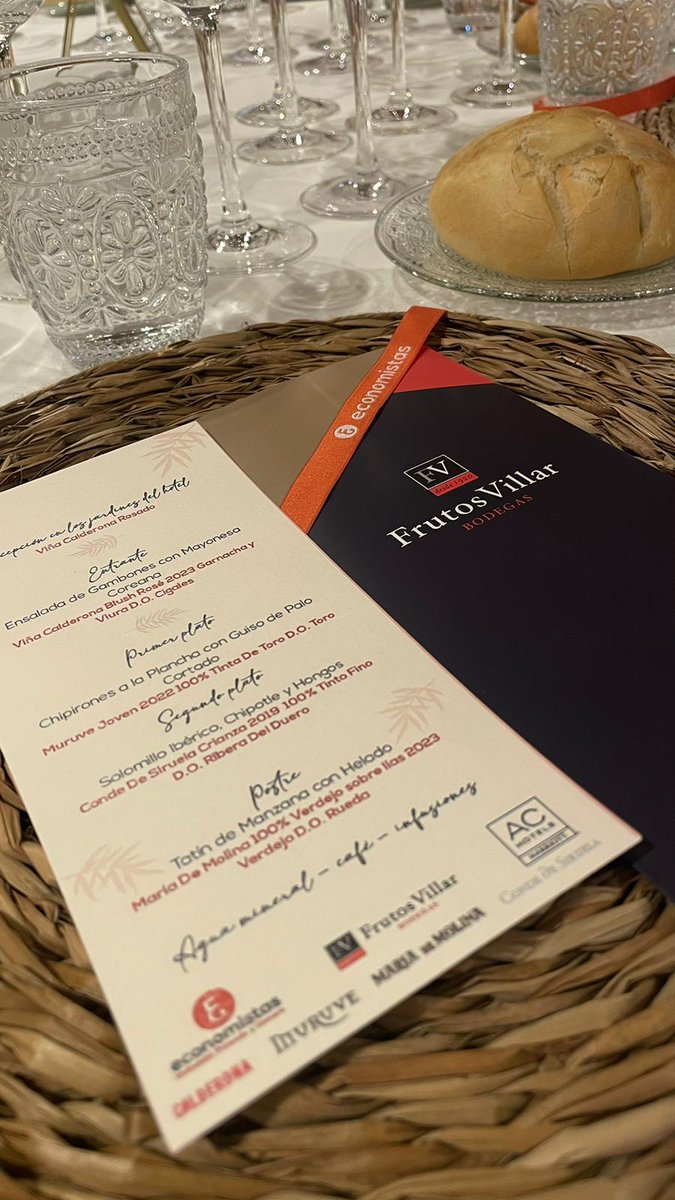 economistas
FV
desde 1920
FrutosVillar
BODEGAS
cepción en los jardines del hotel
Viña Calderona Rosado
Entrante
Ensalada de Gambones con Mayonesa
Coreana
Viña Calderona Blush Rosé 2023 Garnacha y
Viura D.O. Cigales
Primer plato
Chipirones a la Plancha con Guiso de Palo
Cortado
Muruve Joven 2022 100% Tinta De Toro D.O. Toro
Segundo plato
Solomillo Ibérico, Chipotle y Hongos
Conde De Siruela Crianza 2019 100% Tinto Fino
D.O. Ribera Del Duero
Postre
Tatin de Manzana con Helado
María De Molina 100% Verdejo sobre lías 2023
Verdejo D.O. Rueda
Agua mineral - café - infusiones
AC
HOTELS
MARRIOTT
FV
FrutosVillar
BODEGAS
MARIA DE MOLINA
CONDE DE SIRUELA
economistas
MURUVE
CALDERONA